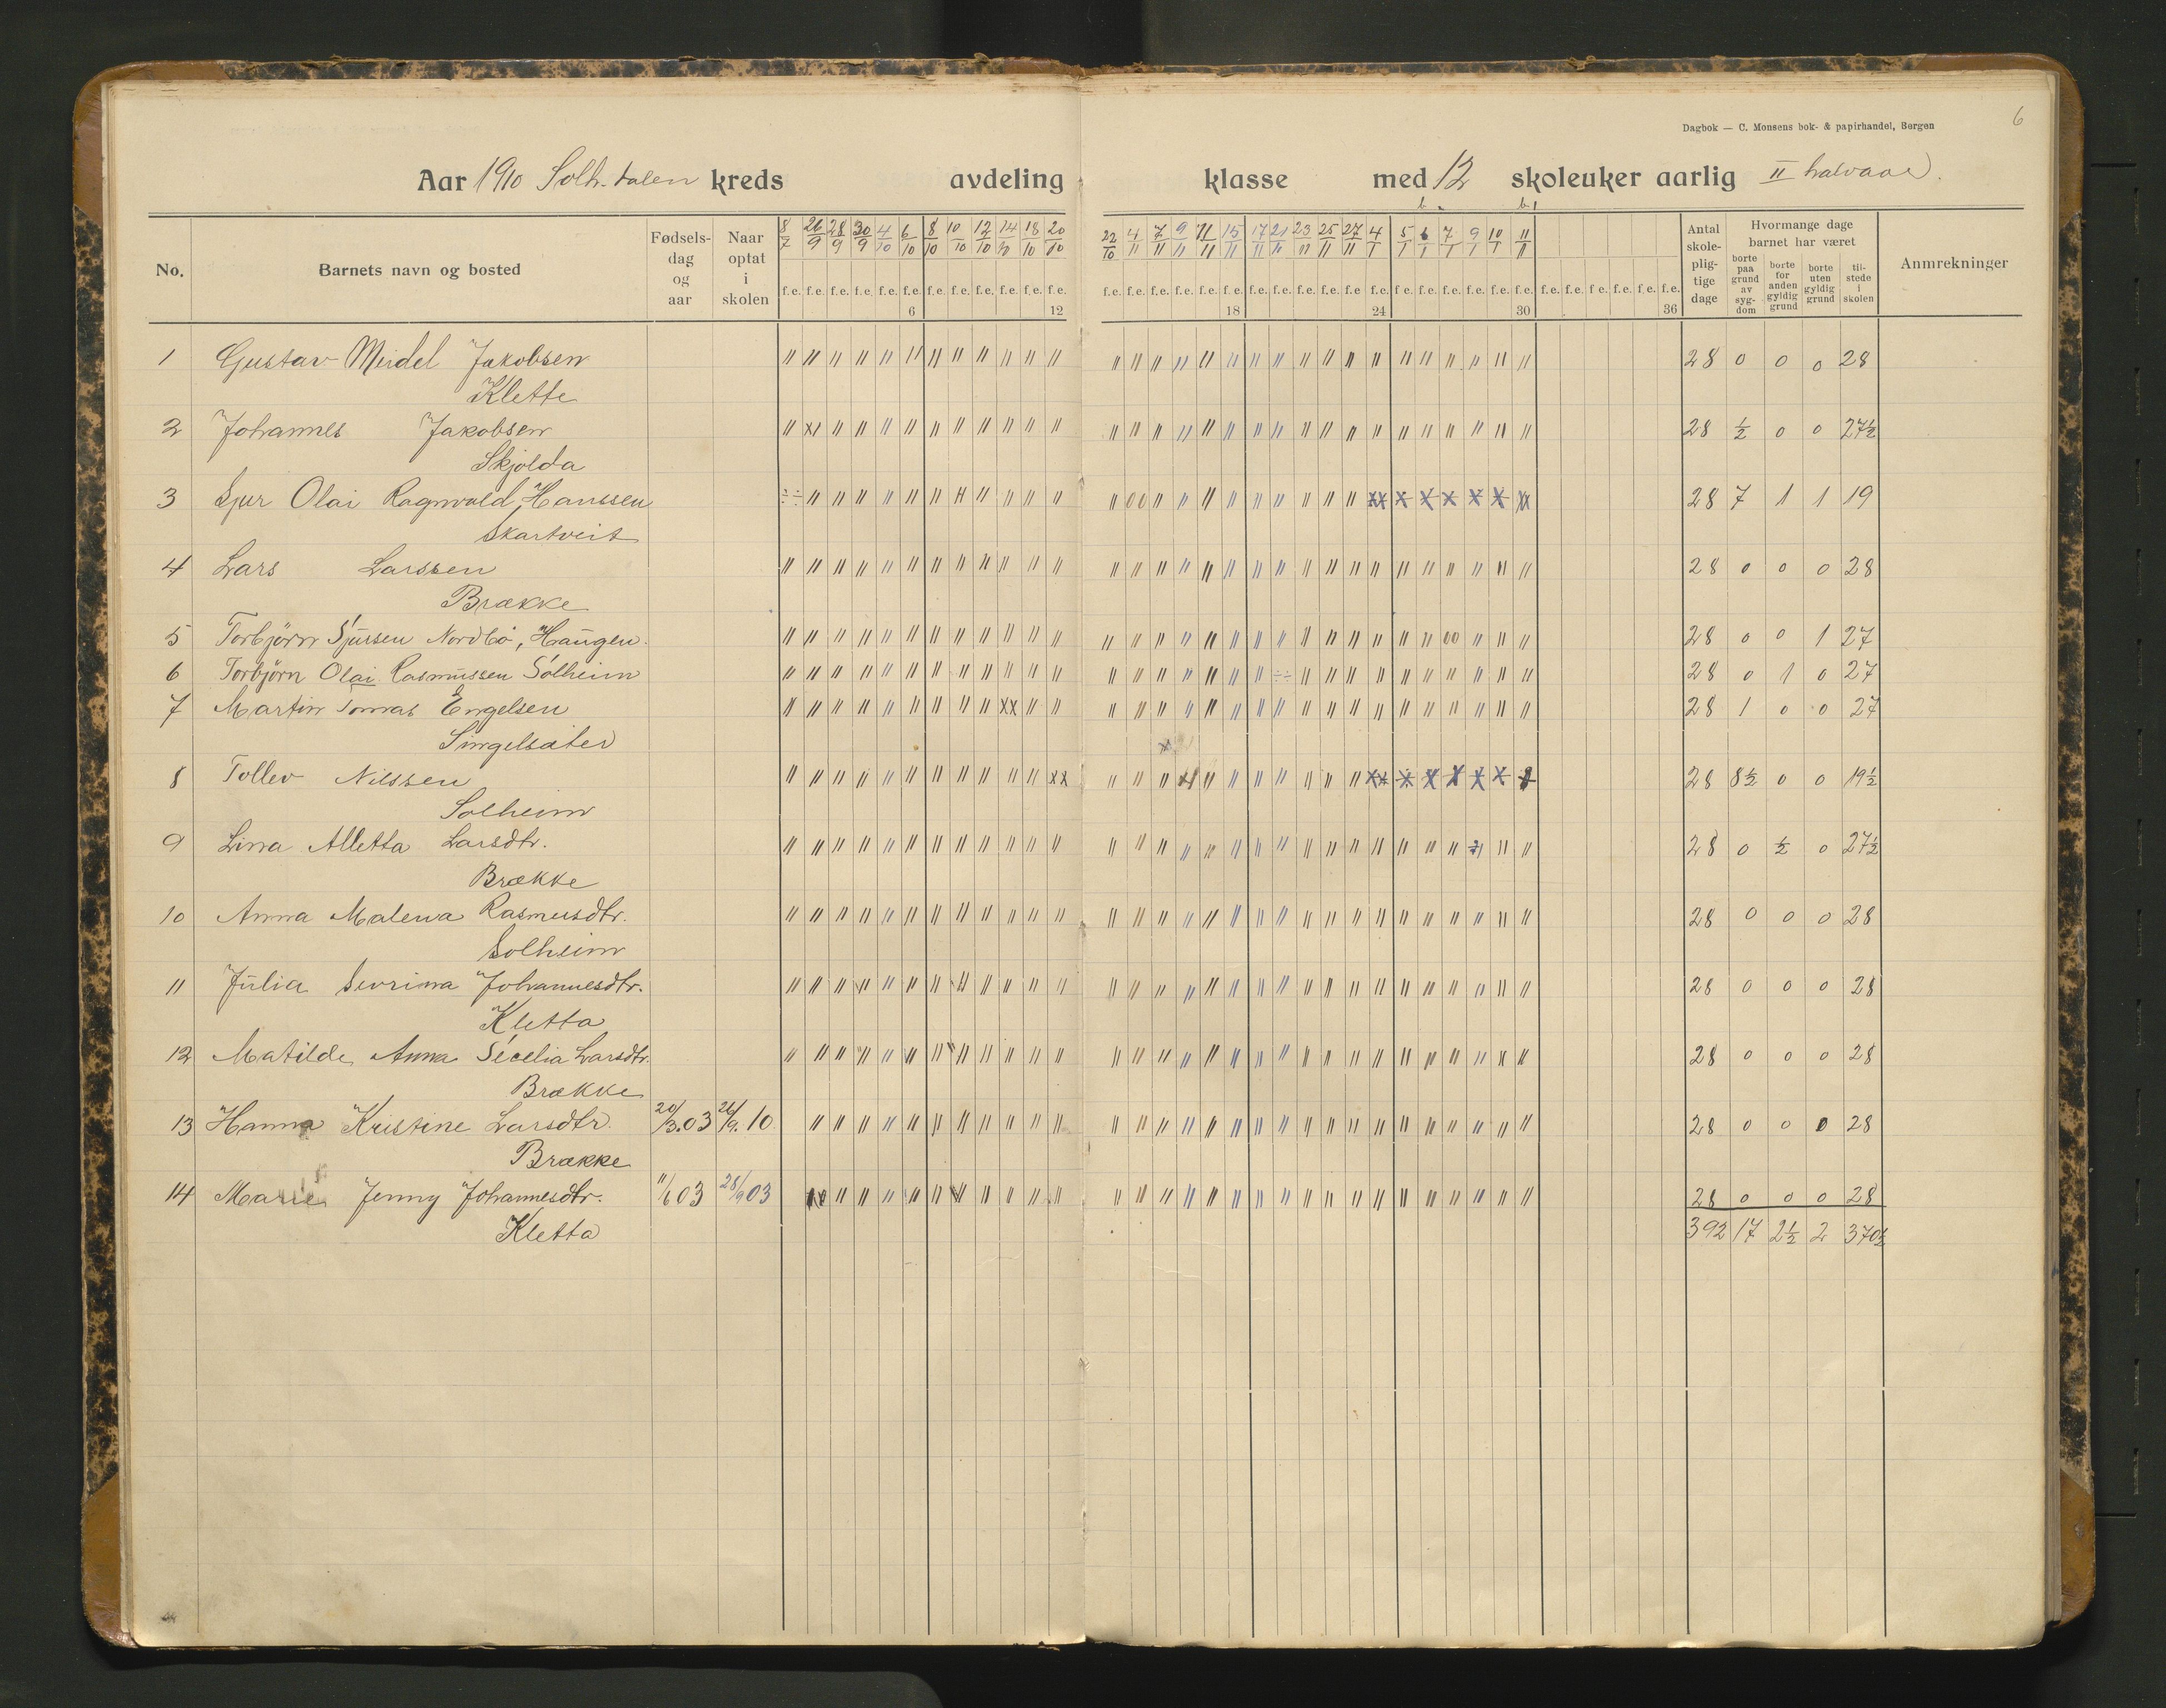 Dagbok — C. Monsens bok- & papirhandel, Bergen
6
Aar 1910 Solh. dalen kreds avdeling klasse med 12 skoleuker aarlig II halvaar.
No. Barnets navn og bosted Fødsels-dag og aar Naar optat i skolen
8/7 26/9 28/9 30/9 4/10 6/10 8/10 10/10 12/10 14/10 18/10 20/10 22/10 4/11 7/11 9/11 11/11 15/11 17/11 21/11 23/11 25/11 27/11 4/1 5/1 6/1 7/1 9/1 10/1 11/1
f.e. f.e. f.e. f.e. f.e. f.e. f.e. f.e. f.e. f.e. f.e. f.e. f.e. f.e. f.e. f.e. f.e. f.e. f.e. f.e. f.e. f.e. f.e. f.e. f.e. f.e. f.e. f.e. f.e. f.e. f.e. f.e. f.e. f.e. f.e. f.e.
6 12 18 24 30 36
Antal skole-plig-tige dage
Hvormange dage barnet har været
borte paa grund av syg-dom
borte for anden gyldig grund
borte uten gyldig grund
til-stede i skolen
Anmrekninger
1 Gustav Meidel Jakobsen 28 0 0 0 28
Klette
2 Johannes Jakobsen 28 ½ 0 0 27½
Skjolda
3 Sjur Olai Ragnvald Hanssen 28 7 1 1 19
Skartveit
4 Lars Larssen 28 0 0 0 28
Brække
5 Torbjörn Sjurssen Nordbö, Haugen. 28 0 0 1 27
6 Torbjörn Olai Rasmussen Solheim 28 0 1 0 27
7 Martin Tomas Engelsen 28 1 0 0 27
Singelsæter
8 Tollev Nilssen 28 8½ 0 0 19½
Solheim
9 Lina Alletta Larsdtr. 28 0 ½ 0 27½
Brække
10 Anna Malena Rasmusdtr. 28 0 0 0 28
Solheim
11 Julia Sevrina Johannesdtr. 28 0 0 0 28
Kletta
12 Matilde Anna Secelia Larsdtr. 28 0 0 0 28
Brække
13 Hanna Kristine Larsdtr. 20/3.03 26/9.10 28 0 0 0 28
Brække
14 Marie Jenny Johannesdtr. 11/6 03 28/9 03 28 0 0 0 28
Kletta 392 17 2½ 2 370½